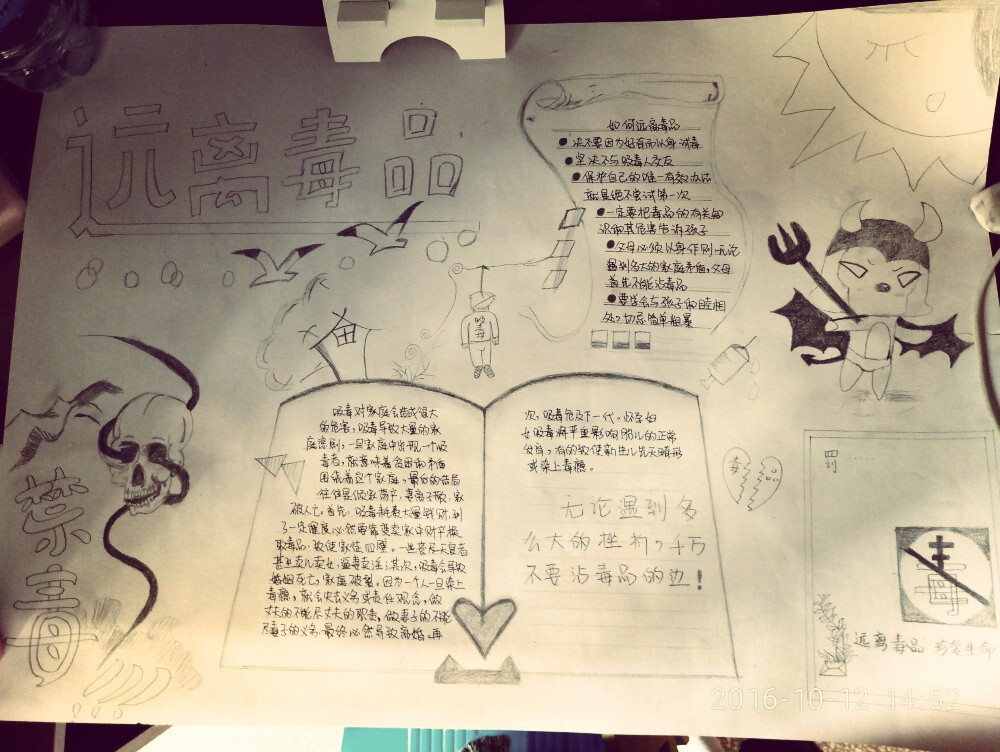 远离毒品
如何远离毒品
●决不要因为好奇而以身试毒
●坚决不与吸毒人交友
●保护自己的唯一有效办法
就是绝不尝试第一次
●一定要把毒品的有关知
识和其危害告诉孩子
●父母必须以身作则，无论
遇到多大的家庭矛盾，父母
首先不能沾毒品
●要学会与孩子和睦相
处，切忌简单粗暴
吸毒
吸毒对家庭会造成很大
的危害，吸毒导致大量的家
庭悲剧，一旦家庭中出现一个吸
毒者，就意味着贫困和矛盾
围绕着这个家庭。最后的结局
往往是倾家荡产，妻离子散，家
破人亡。首先，吸毒耗费大量钱财，到
了一定程度必然要靠变卖家中财产换
取毒品，致使家徒四壁。一些丧尽天良者
甚至卖儿卖女，逼妻卖淫；其次，吸毒会导致
婚姻死亡，家庭破裂。因为一个人一旦染上
毒瘾，就会失去义务或责任观念，做
丈夫的不能尽丈夫的职责，做妻子的不能
尽妻子的义务，最终必然导致离婚。再
次，吸毒危及下一代。怀孕妇
女吸毒将严重影响胎儿的正常
发育，有的致使新生儿先天畸形
或染上毒瘾。
无论遇到多
么大的挫折，千万
不要沾毒品的边！
毒品
禁毒
毒
远离毒品 珍爱生命
2016-10-12 14:52